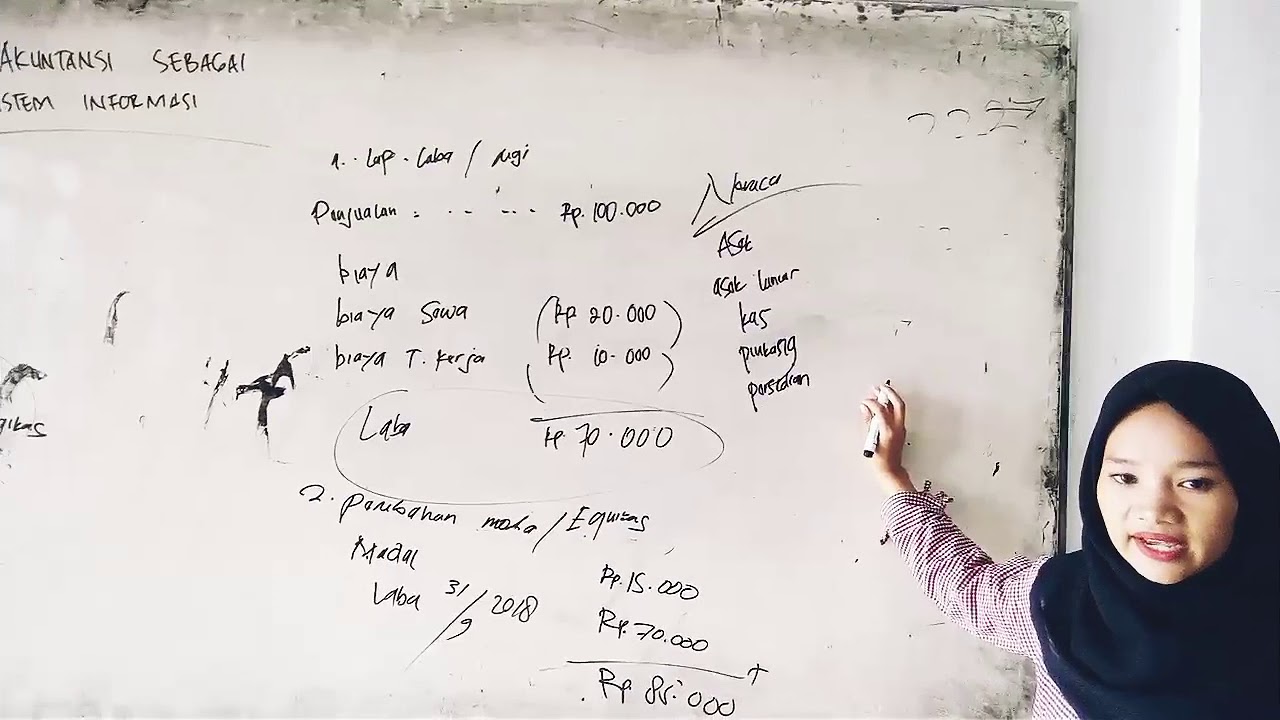 AKUNTANSI SEBAGAI
ISTEM INFORMASI
1. Lap. Laba / rugi
Penjualan : Rp. 100.000
biaya
biaya Sewa (Rp 20.000)
biaya T. kerja (Rp. 10.000)
Laba Rp 70.000
2. perubahan / Equitas
Modal Rp. 15.000
Laba 31/9/2018 Rp. 70.000
+
Rp 85.000
Neraca
Aset
aset lancar
kas
piutang